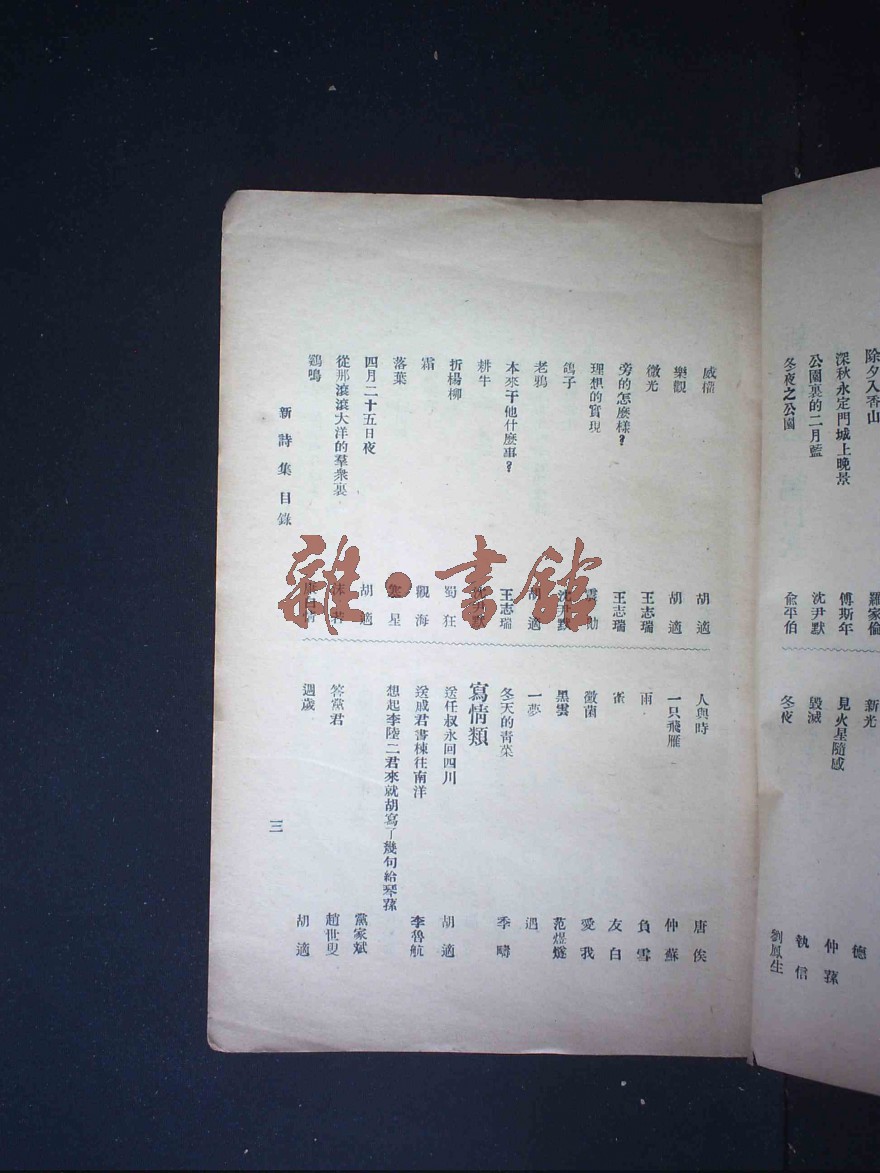 除夕入香山 羅家倫
深秋永定門城上晚景 傅斯年
公園裏的二月藍 沈尹默
冬夜之公園 俞平伯
新光 德
見火星隨感 仲蓀
毀滅 執信
冬夜 劉鳳生
威權 胡適
樂觀 胡適
微光 王志瑞
旁的怎麼樣? 王志瑞
理想的實現 震勳
鴿子 沈尹默
老鴉 胡適
本來干他什麼事? 王志瑞
耕牛 沈尹默
折楊柳 蜀狂
霜 觀海
落葉 寒星
四月二十五日夜 胡適
從那滾滾大洋的羣衆裏 沫若
鷄鳴 康白情
人與時 唐俟
一只飛雁 仲蘇
雨 負雪
雀 友白
黴菌 愛我
黑雲 范煜燧
一夢 遇
冬天的青菜 季疇
寫情類
送任叔永回四川 胡適
送戚君書棟往南洋 李魯航
想起李陸二君來就胡寫了幾句給琴蓀 黨家斌
答黨君 趙世叟
週歲 胡適
新詩集目錄
三
雜·書館